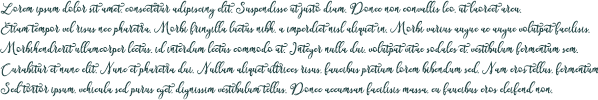 Lorem ipsum dolor sit amet, consectetur adipiscing elit. Suspendisse at justo diam. Donec non convallis leo, at laoreet arcu.
Etiam tempor vel risus nec pharetra. Morbi fringilla lectus nibh, a imperdiet nisl aliquet in. Morbi varius augue ac augue volutpat facilisis.
Morbihendrerit ullamcorper lectus, id interdum lectus commodo at. Integer nulla dui, volutpat vitae sodales et, vestibulum fermentum sem.
Curabitur et nunc elit. Nunc et pharetra dui. Nullam aliquet ultrices risus, faucibus pretium lorem bibendum sed. Nam eros tellus, fermentum
Sed tortor ipsum, vehicula sed purus eget, dignissim vestibulum tellus. Donec accumsan facilisis massa, eu faucibus eros eleifend non.